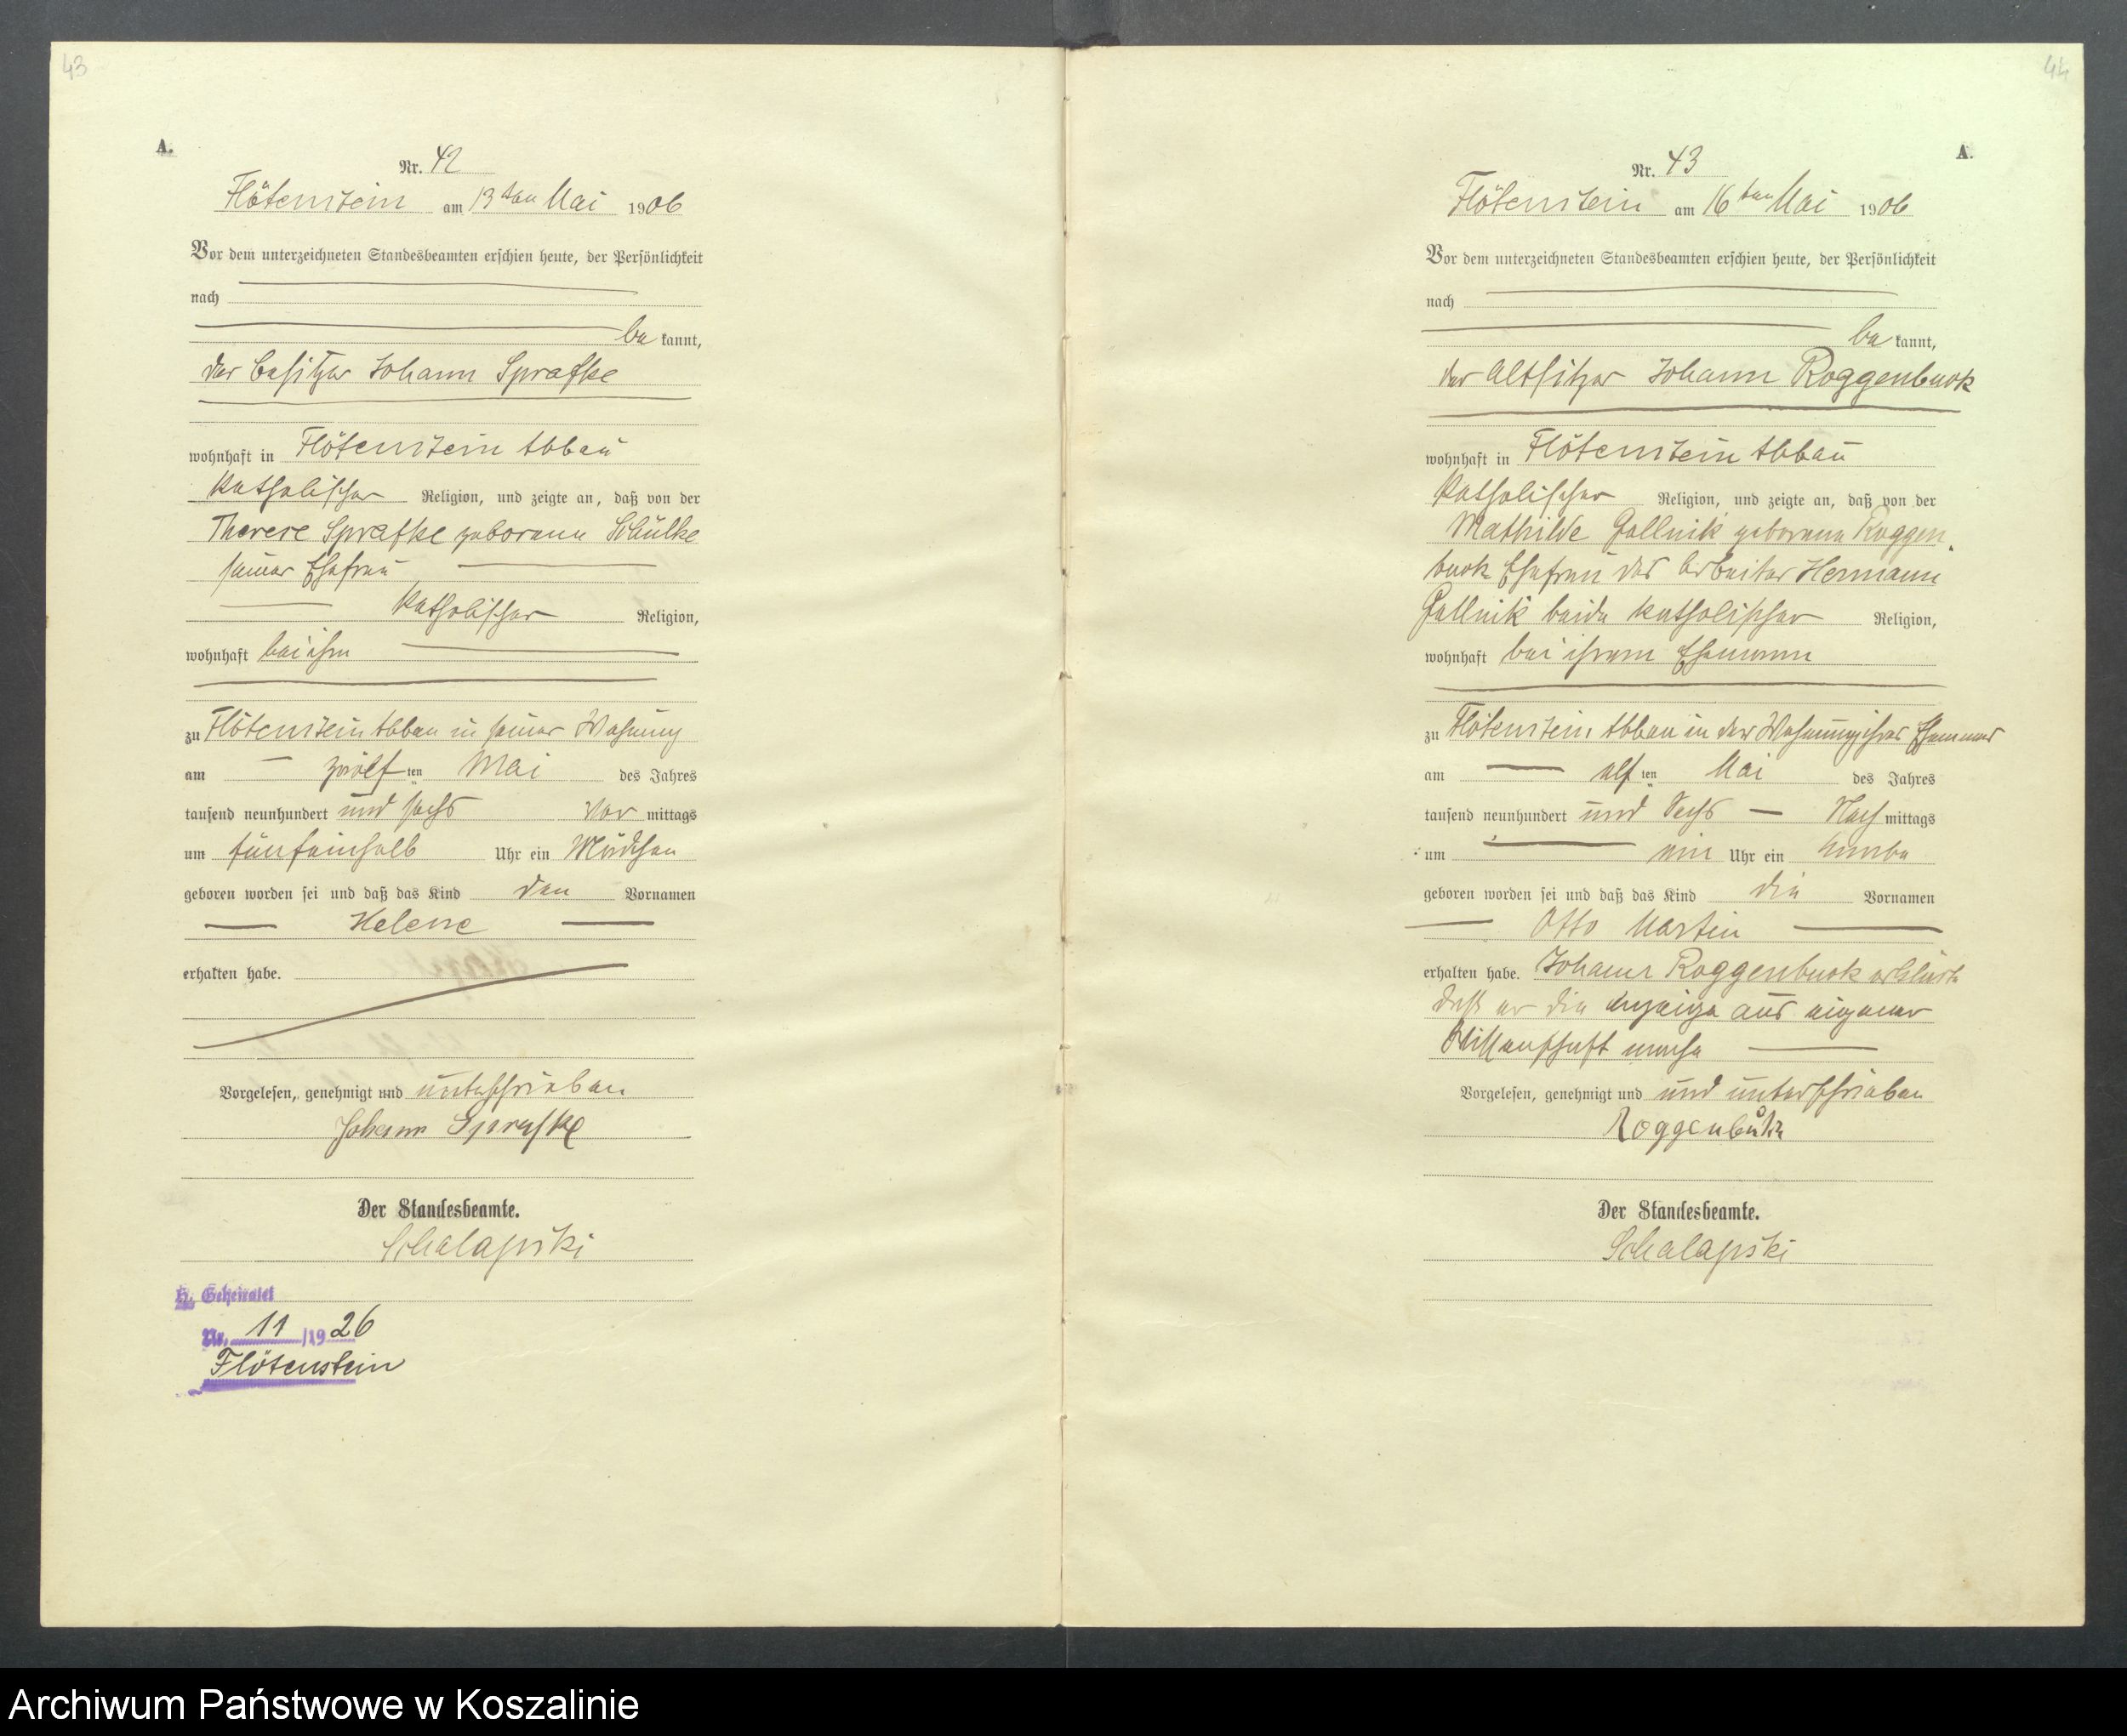 43
A.
Nr. 42
Flötenstein am 13ten Mai 1906
Vor dem unterzeichneten Standesbeamten erschien heute, der Persönlichkeit
nach
be kannt,
der Besitzer Johann Sprafke
wohnhaft in Flötenstein Abbau
katholischer Religion, und zeigte an, daß von der
Therese Sprafke geborenen Schülke
seiner Ehefrau
katholischer Religion,
wohnhaft bei ihm
zu Flötenstein Abbau in seiner Wohnung
am zwölf ten Mai des Jahres
tausend neunhundert und sechs Vor mittags
um fünfeinhalb Uhr ein Mädchen
geboren worden sei und daß das Kind den Vornamen
Helene
erhalten habe.
Vorgelesen, genehmigt und unterschrieben
Johann Sprafke
Der Standesbeamte.
Schalapski
H. Geheiratet
Nr. 11 /1926
Flötenstein
44
A.
Nr. 43
Flötenstein am 16ten Mai 1906
Vor dem unterzeichneten Standesbeamten erschien heute, der Persönlichkeit
nach
be kannt,
der Altsitzer Johann Roggenbuck
wohnhaft in Flötenstein Abbau
katholischer Religion, und zeigte an, daß von der
Mathilde Gallnik geborenen Roggen
buck Ehefrau des Arbeiter Hermann
Gallnik beide katholischer Religion,
wohnhaft bei ihrem Ehemann
zu Flötenstein Abbau in der Wohnung ihres Ehemannes
am elf ten Mai des Jahres
tausend neunhundert und Sechs Nach mittags
um ein Uhr ein Knabe
geboren worden sei und daß das Kind die Vornamen
Otto Martin
erhalten habe. Johann Roggenbuck erklärte
daß er die Anzeige aus eigener
Wissenschaft mache
Vorgelesen, genehmigt und und unterschrieben
Roggenbuck
Der Standesbeamte.
Schalapski
Archiwum Państwowe w Koszalinie